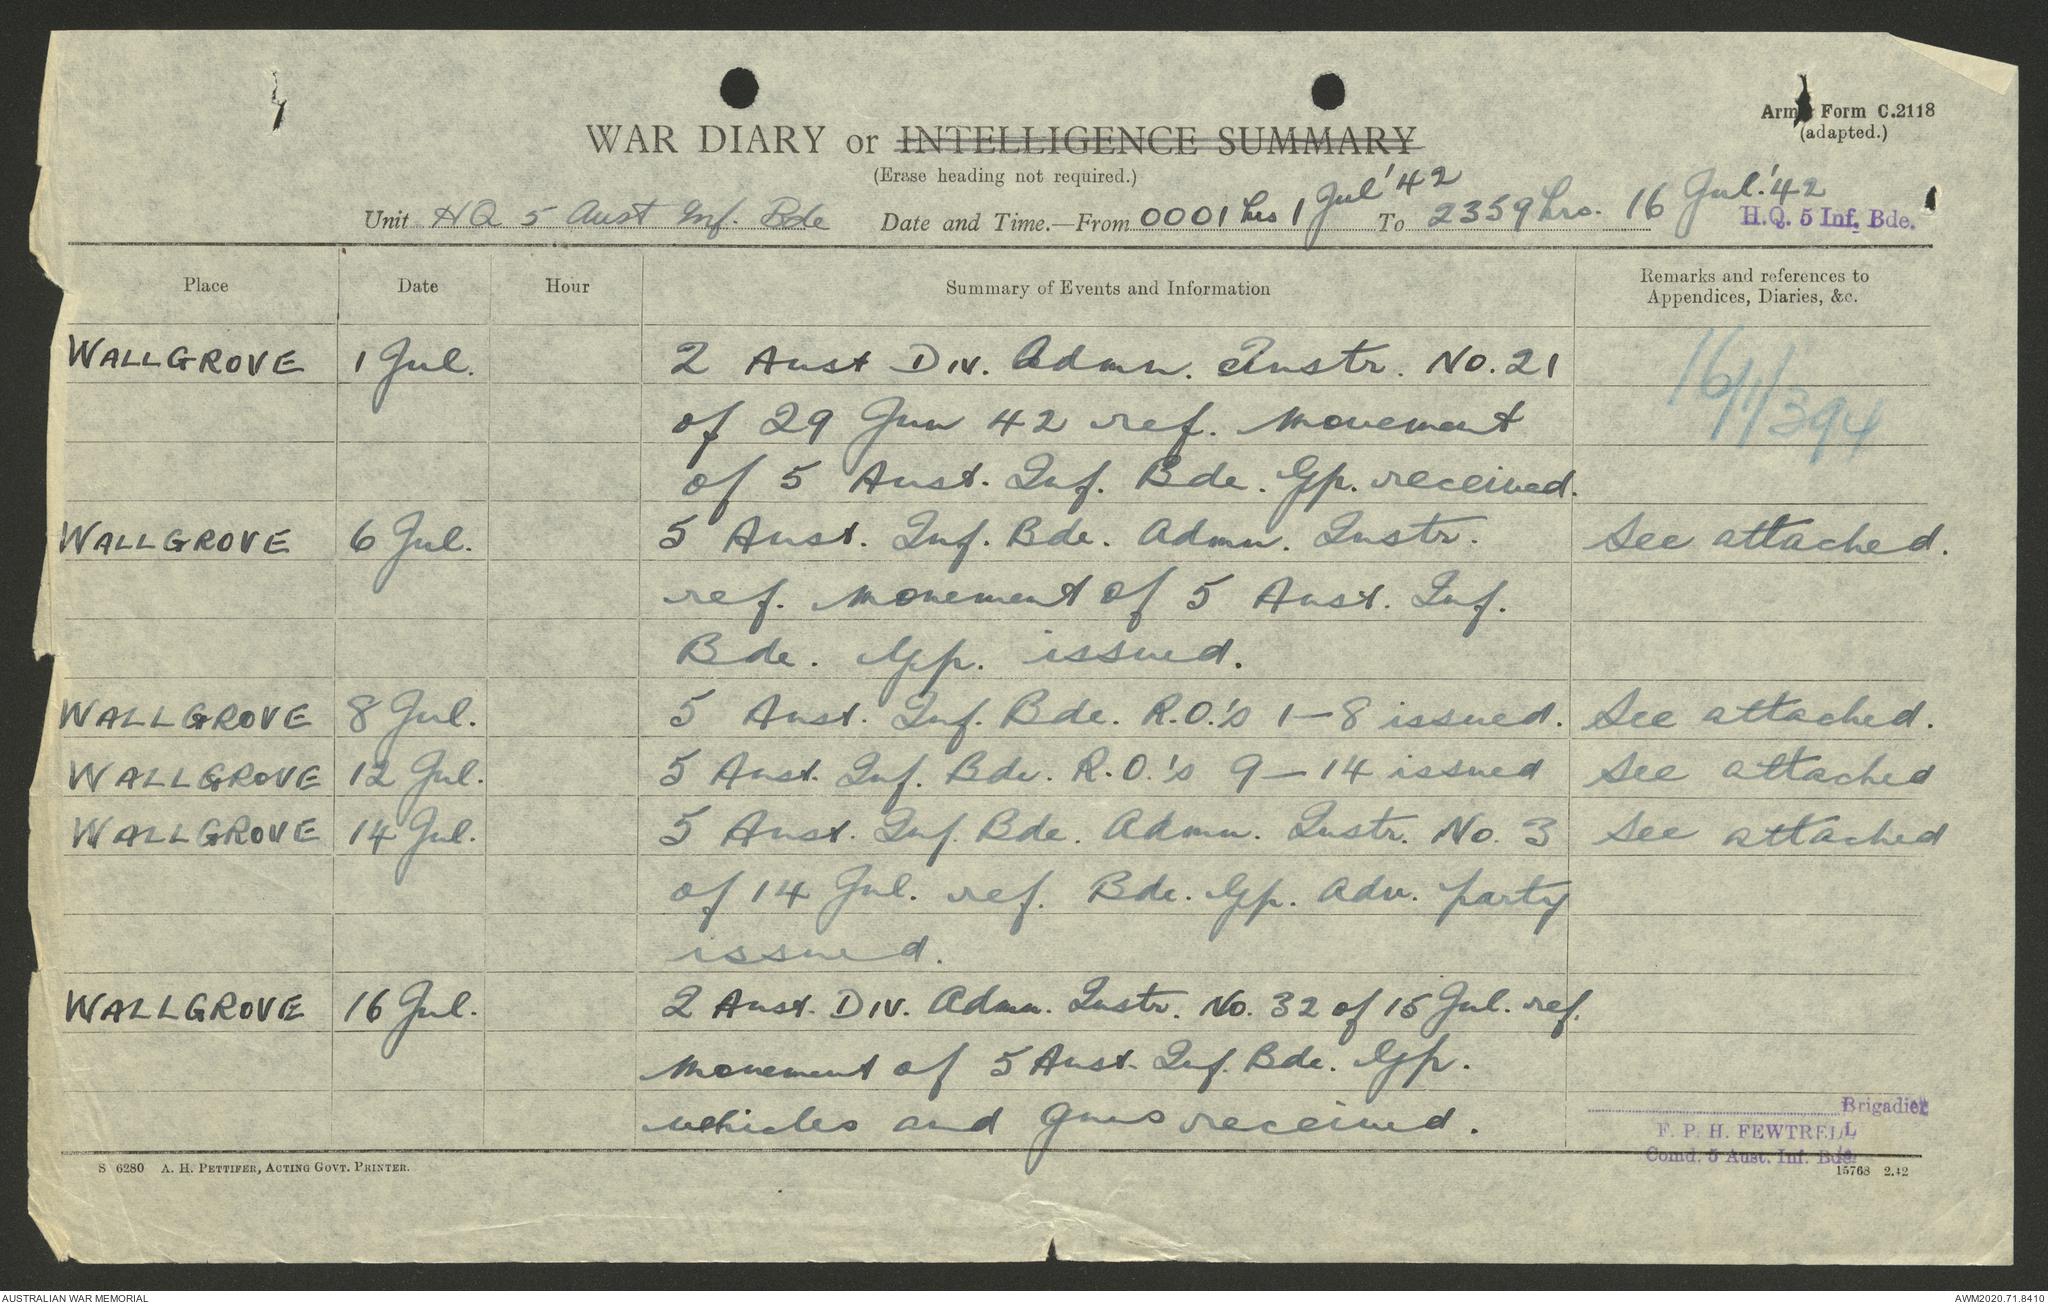 Army Form C.2118
(adapted.)
WAR DIARY or INTELLIGENCE SUMMARY
(Erase heading not required.)
Unit HQ 5 Aust Inf. Bde Date and Time.—From 0001 hrs 1 Jul '42 To 2359 hrs. 16 Jul.'42
H.Q. 5 Inf. Bde.
Place Date Hour Summary of Events and Information Remarks and references to Appendices, Diaries, &c.
16/1/394
WALLGROVE 1 Jul. 2 Aust Div. Admn. Instr. No. 21
of 29 Jun 42 ref. movement
of 5 Aust. Inf. Bde. Gp. received.
WALLGROVE 6 Jul. 5 Aust. Inf. Bde. Admn. Instr. See attached.
ref. movement of 5 Aust. Inf.
Bde. Gp. issued.
WALLGROVE 8 Jul. 5 Aust. Inf. Bde. R.O.'s 1-8 issued. See attached.
WALLGROVE 12 Jul. 5 Aust. Inf. Bde. R.O.'s 9-14 issued See attached
WALLGROVE 14 Jul. 5 Aust. Inf. Bde. Admn. Instr. No. 3 See attached
of 14 Jul. ref. Bde. Gp. Adv. party
issued.
WALLGROVE 16 Jul. 2 Aust. Div. Admn. Instr. No. 32 of 15 Jul. ref.
movement of 5 Aust. Inf. Bde. Gp.
vehicles and guns received.
Brigadier
F. P. H. FEWTRELL
Comd. 5 Aust. Inf. Bde.
S 6280 A. H. PETTIFER, ACTING GOVT. PRINTER. 15768 2.42
AUSTRALIAN WAR MEMORIAL AWM2020.71.8410